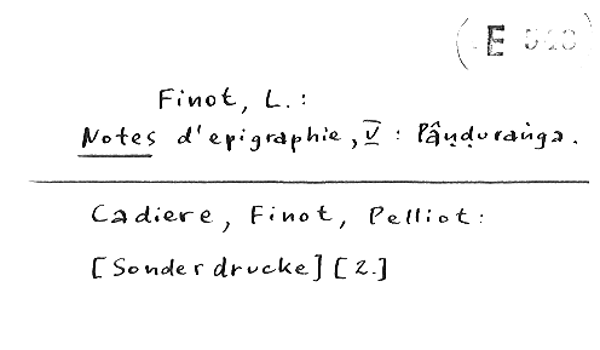 (E
Finot, L.:
Notes d'epigraphie, V : Pâṇḍuraṅga.
Cadiere, Finot, Pelliot:
[Sonderdrucke] [2.]